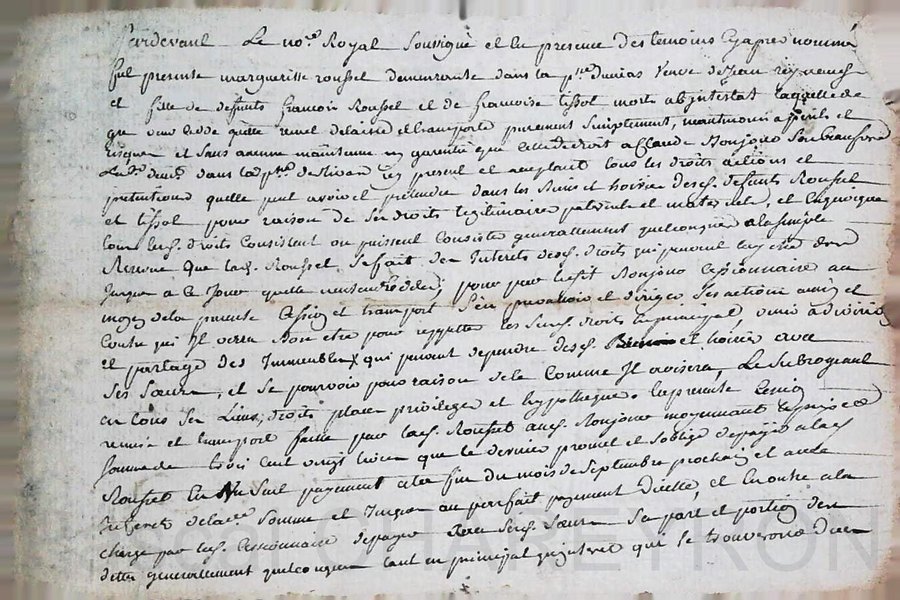 Pardevant Le no.re Royal Soussigné et en presence des temoins cy apres nommés
fut presente marguerisse roussel demeurante dans la p.sse veuve de Jean
et fille de deffunts francois Roussel et de francoise tissot morts abintestat laquelle de
gre cede quitte remet delaisse et transporte purement simplement,
risques et sans aucune maintenue ny garentie que de droit a Claude Bonjour Son beaufrere
dans la p.sse de icy present et acceptant tous les droits actions et
pretentions quelle peut avoir et pretendre dans les Biens et hoirie desd. deffunts Roussel
et tissot pour raison de Ses droits legitimaires paternels et maternels, et Enquoyque
tous lesd. droits Consistent ou puissent Consister generallement quelconques a la simple
Reserve que lad. Roussel Se fait des Interets desd. droits qui peuvent
Jusques a Ce Jour pour par led. Bonjour Cessionnaire au
moyen de la presente Cession et transport S'en prevaloir et diriger Ses actions ainsy et
Contre qui Il verra Bon etre pour repetter les Susd. droits En principal venir a division
et partage des Immeubles qui peuvent dependre desd. et hoiries avec
Ses Sœurs, et Se pourvoir pour raison de Ce Comme Il avisera, Le Subrogeant
en tous Ses Lieux, droits places privileges et hypotheques. la presente Cession
remise et transport faitte par lad. Roussel aud. Bonjour moyennant le prix et
Somme de trois Cent vingt livres que Ce dernier promet et s'oblige de payer a lad.
Roussel En un Seul payement a la fin du mois de Septembre prochain et avec
Interets de lad.e Somme et Jusques au parfait payement D'icelle, et En outre a la
charge par led. Cessionnaire de payer Sœurs Sa part et portion des
dettes generallement quelconques tant en principal qui Se trouveront Dues
CHAREYRON